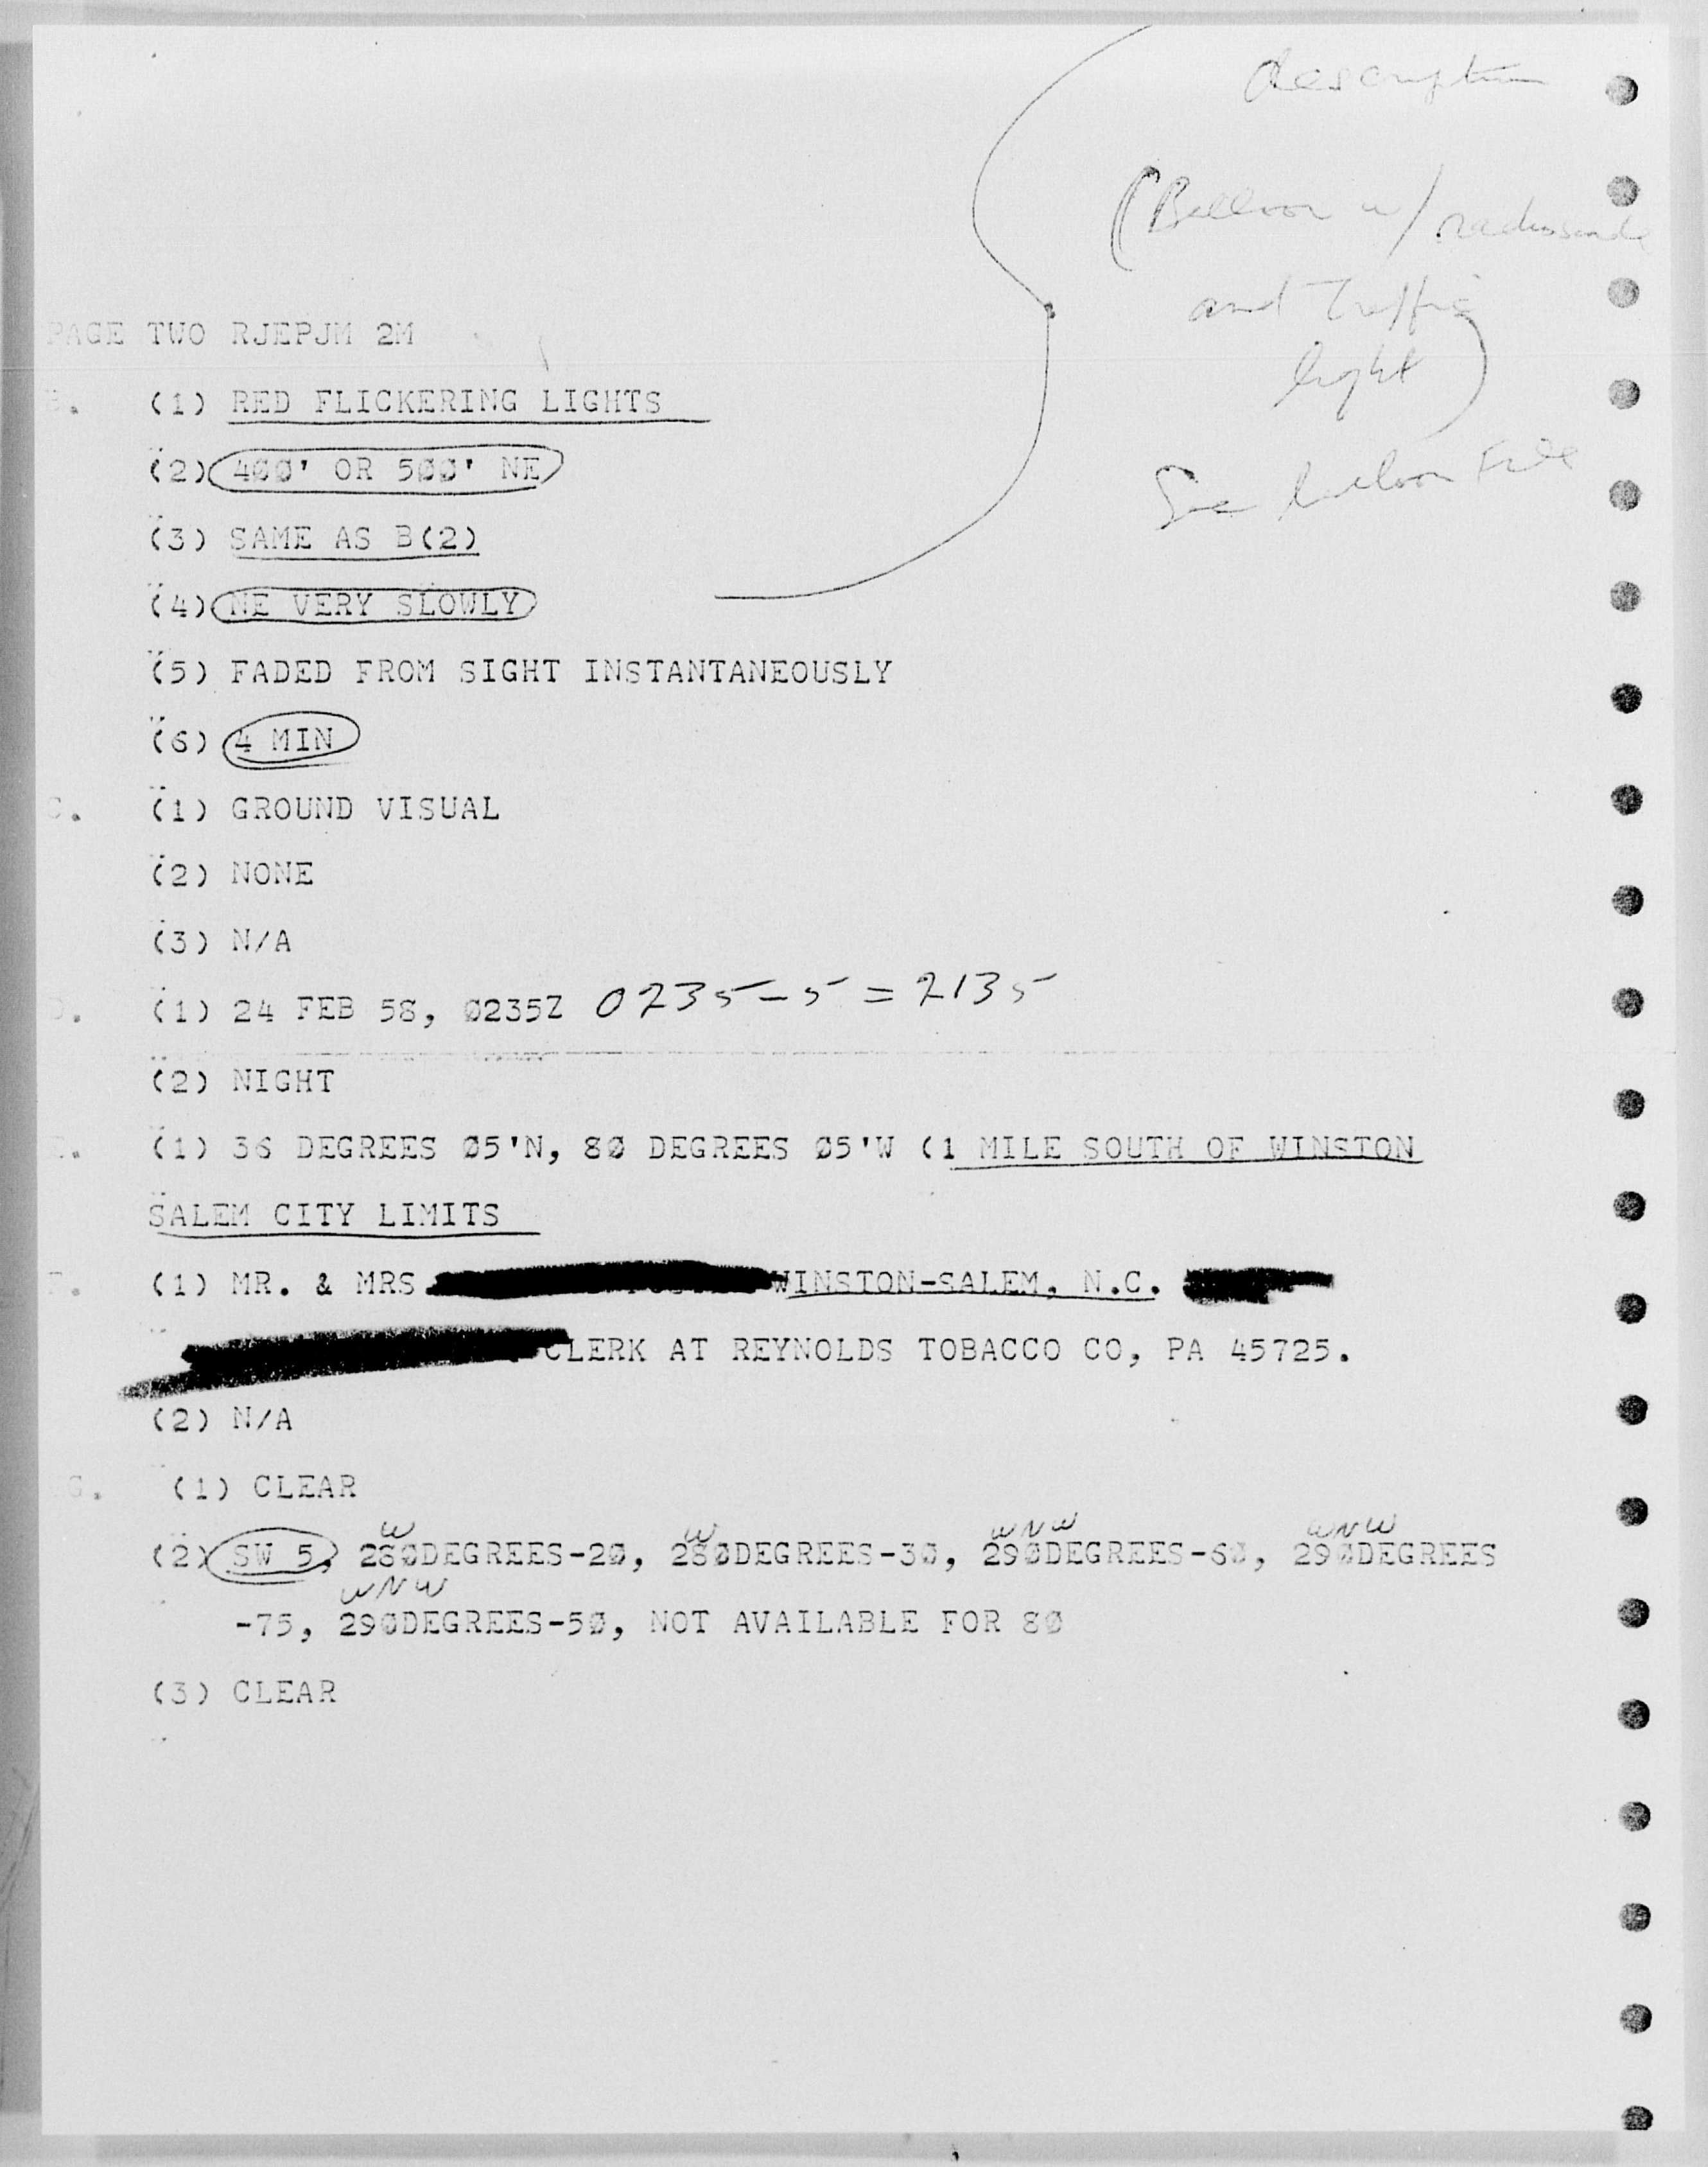 description
(Balloon w/ radiosonde
and Traffic
light)
See balloon File
PAGE TWO RJEPJM 2M
B. (1) RED FLICKERING LIGHTS
(2) 4ØØ' OR 5ØØ' NE
(3) SAME AS B(2)
(4) NE VERY SLOWLY
(5) FADED FROM SIGHT INSTANTANEOUSLY
(6) 4 MIN
C. (1) GROUND VISUAL
(2) NONE
(3) N/A
D. (1) 24 FEB 58, Ø235Z 0235-5 = 2135
(2) NIGHT
E. (1) 36 DEGREES Ø5'N, 8Ø DEGREES Ø5'W (1 MILE SOUTH OF WINSTON
SALEM CITY LIMITS
F. (1) MR. & MRS WINSTON-SALEM, N.C.
CLERK AT REYNOLDS TOBACCO CO, PA 45725.
(2) N/A
G. (1) CLEAR
W W WNW WNW
(2) SW 5, 28ØDEGREES-2Ø, 28ØDEGREES-3Ø, 29ØDEGREES-6Ø, 29ØDEGREES
WNW
-75, 29ØDEGREES-5Ø, NOT AVAILABLE FOR 8Ø
(3) CLEAR